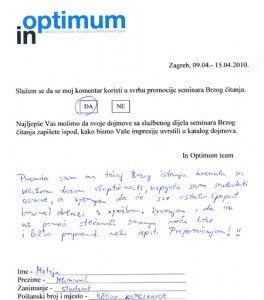 optimum
in
Zagreb, 09.04.- 15.04.2010.
Slažem se da se moj komentar koristi u svrhu promocije seminara Brzog čitanja.
DA NE
Najljepše Vas molimo da svoje dojmove sa službenog dijela seminara Brzog
čitanja zapišete ispod, kako bismo Vaše impresije uvrstili u katalog dojmova.
In Optimum team
Premda sam na tečaj Brzog čitanja krenula sa
velikom dozom skeptičnosti, uspjela sam savladati
osnove, a vjerujem da će sve ostalo (poput
brzine) doći s vježbom. Vjerujem da ću
uz pomoć stečenih znanja moći lakše
i brže pripremiti neki ispit. Preporučujem!!!
Ime - Mateja
Prezime -
Zanimanje - student
Poštanski broj i mjesto - KOPRIVNICA